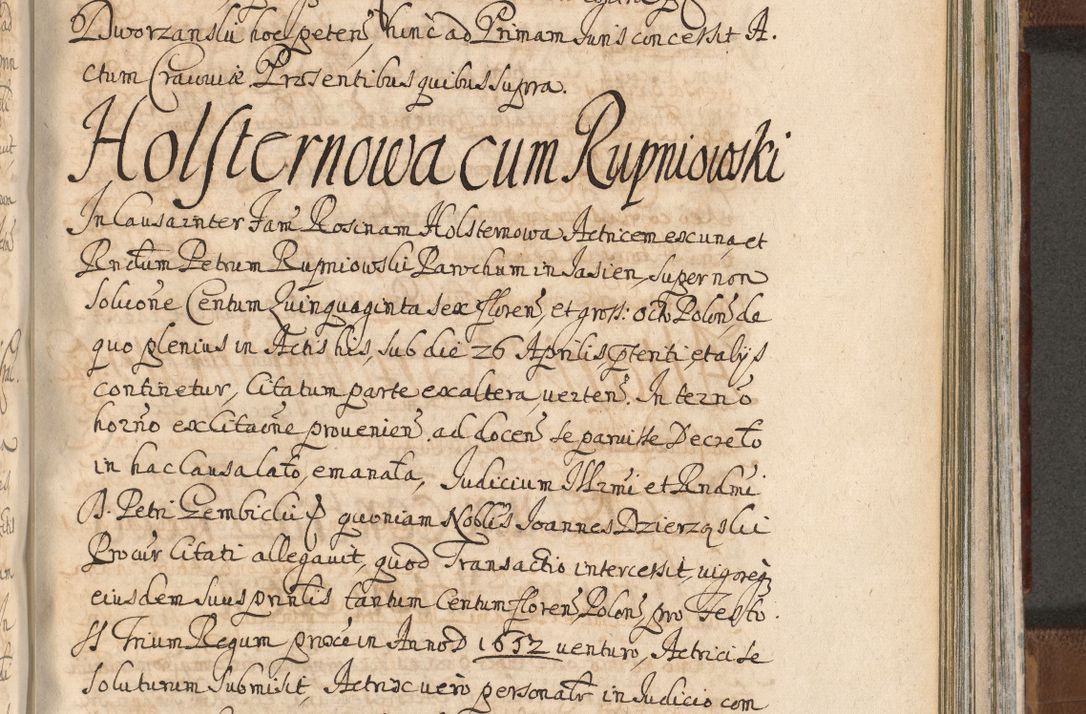 Dworzanskii hoc petenɛ̃ hinc ad Primam Juris concessit A.
ctum Cracoviæ Præsentibus quibus supra.
Holsternowa cum Rupniowski
In Causa inter Fam̃ Rosinam Holsternowa Actricem ex una, et
Rndum Petrum Rupniowski Parochum in Jasien, super non
solucõne Centum Quinquaginta sex floren̄ et gross: octo Polon̄ de
quo plenius in Actis his, sub die 26 Aprilis, p̄tenti et alijs
continetur, Citatum parte ex altera, verten̄. In term̄o
horn̄o ex Citaõne provenien̄. ad docen̄ se paruisse Decreto
in hac Causa lato, emanata, Judicium Illrmi et Rndmi
D. Petri Gembickii P quoniam Noblis Joannes Dzierząskii
Procur Citati allegavit, quod Transactio intercessit, vigoreq
eiusdem suus prin̄lis tantum Centum floren̄ Polon̄ pro Festo.
SS Trium Regum proxe in Anno D 1652 venturo, Actrici se
soluturum submisit, Actrix vero personalr in Judicio com